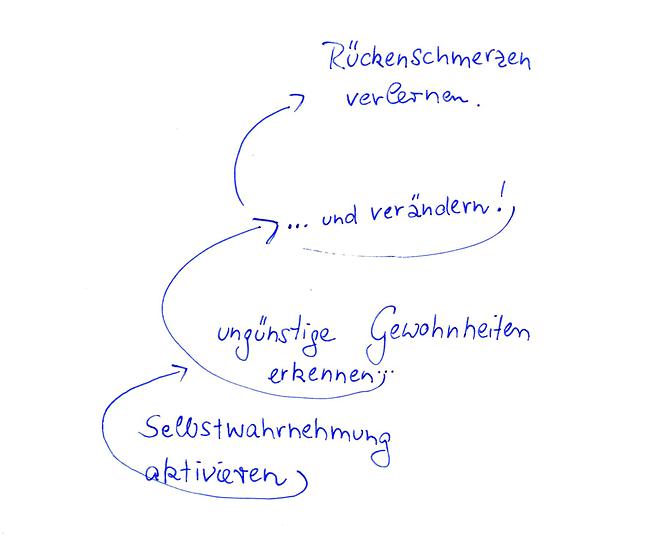 Rückenschmerzen
verlernen.
... und verändern!
ungünstige Gewohnheiten
erkennen...
Selbstwahrnehmung
aktivieren